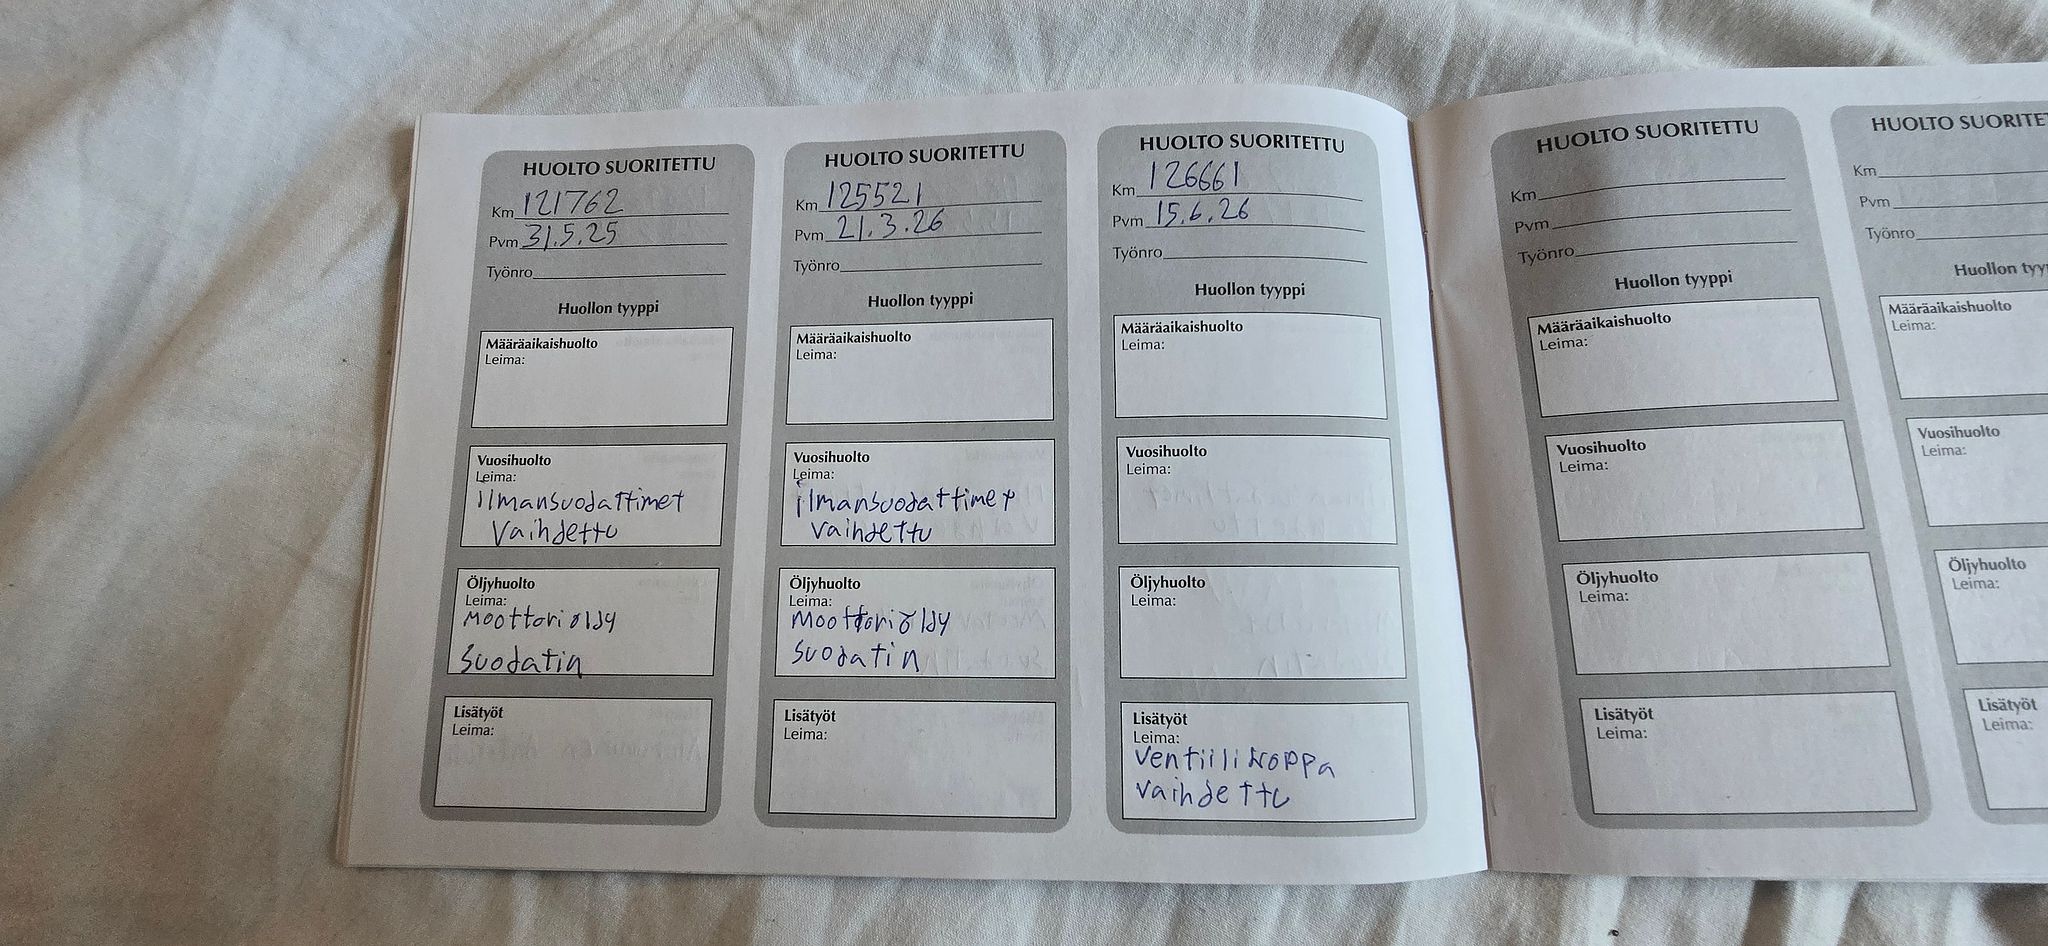 HUOLTO SUORITETTU
Km 121762
Pvm 31.5.25
Työnro
Huollon tyyppi
Määräaikaishuolto
Leima:
Vuosihuolto
Leima:
ilmansuodattimet
vaihdettu
Öljyhuolto
Leima:
moottoriöljy
suodatin
Lisätyöt
Leima:
HUOLTO SUORITETTU
Km 125521
Pvm 21.3.26
Työnro
Huollon tyyppi
Määräaikaishuolto
Leima:
Vuosihuolto
Leima:
ilmansuodattimet
vaihdettu
Öljyhuolto
Leima:
moottoriöljy
suodatin
Lisätyöt
Leima:
HUOLTO SUORITETTU
Km 126661
Pvm 15.6.26
Työnro
Huollon tyyppi
Määräaikaishuolto
Leima:
Vuosihuolto
Leima:
Öljyhuolto
Leima:
Lisätyöt
Leima:
ventiilikoppa
vaihdettu
HUOLTO SUORITETTU
Km
Pvm
Työnro
Huollon tyyppi
Määräaikaishuolto
Leima:
Vuosihuolto
Leima:
Öljyhuolto
Leima:
Lisätyöt
Leima:
HUOLTO SUORITE
Km
Pvm
Työnro
Huollon tyy
Määräaikaishuolto
Leima:
Vuosihuolto
Leima:
Öljyhuolto
Leima:
Lisätyöt
Leima: